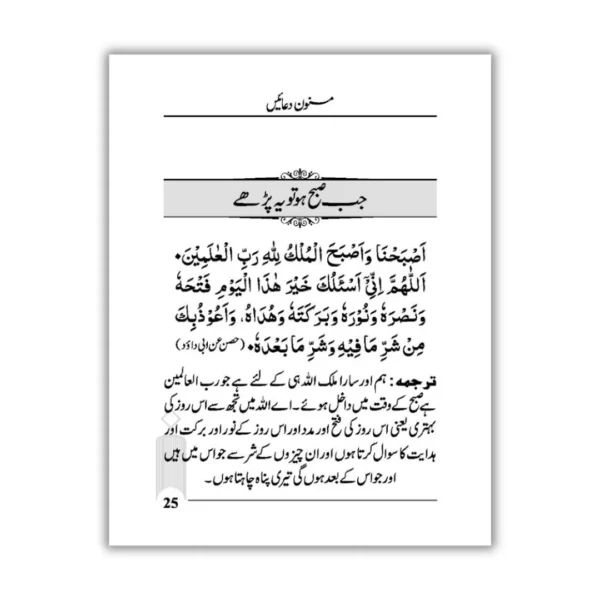 مسنون دعائیں
جب صبح ہو تو یہ پڑھے
اَصْبَحْنَا وَاَصْبَحَ الْمُلْكُ لِلّٰهِ رَبِّ الْعٰلَمِيْنَ۔
اَللّٰهُمَّ اِنِّىْٓ اَسْئَلُكَ خَيْرَ هٰذَا الْيَوْمِ فَتْحَهٗ
وَنَصْرَهٗ وَنُوْرَهٗ وَبَرَكَتَهٗ وَهُدَاهُ، وَاَعُوْذُبِكَ
مِنْ شَرِّ مَا فِيْهِ وَشَرِّ مَا بَعْدَهٗ۔ (حصن عن ابی داؤد)
ترجمہ: ہم اور سارا ملک اللہ ہی کے لئے ہے جو رب العالمین
ہے صبح کے وقت میں داخل ہوئے۔ اے اللہ میں تجھ سے اس روز کی
بہتری یعنی اس روز کی فتح اور مدد اور اس روز کے نور اور برکت اور
ہدایت کا سوال کرتا ہوں اور ان چیزوں کے شر سے جو اس میں ہیں
اور جو اس کے بعد ہوں گی تیری پناہ چاہتا ہوں۔
25